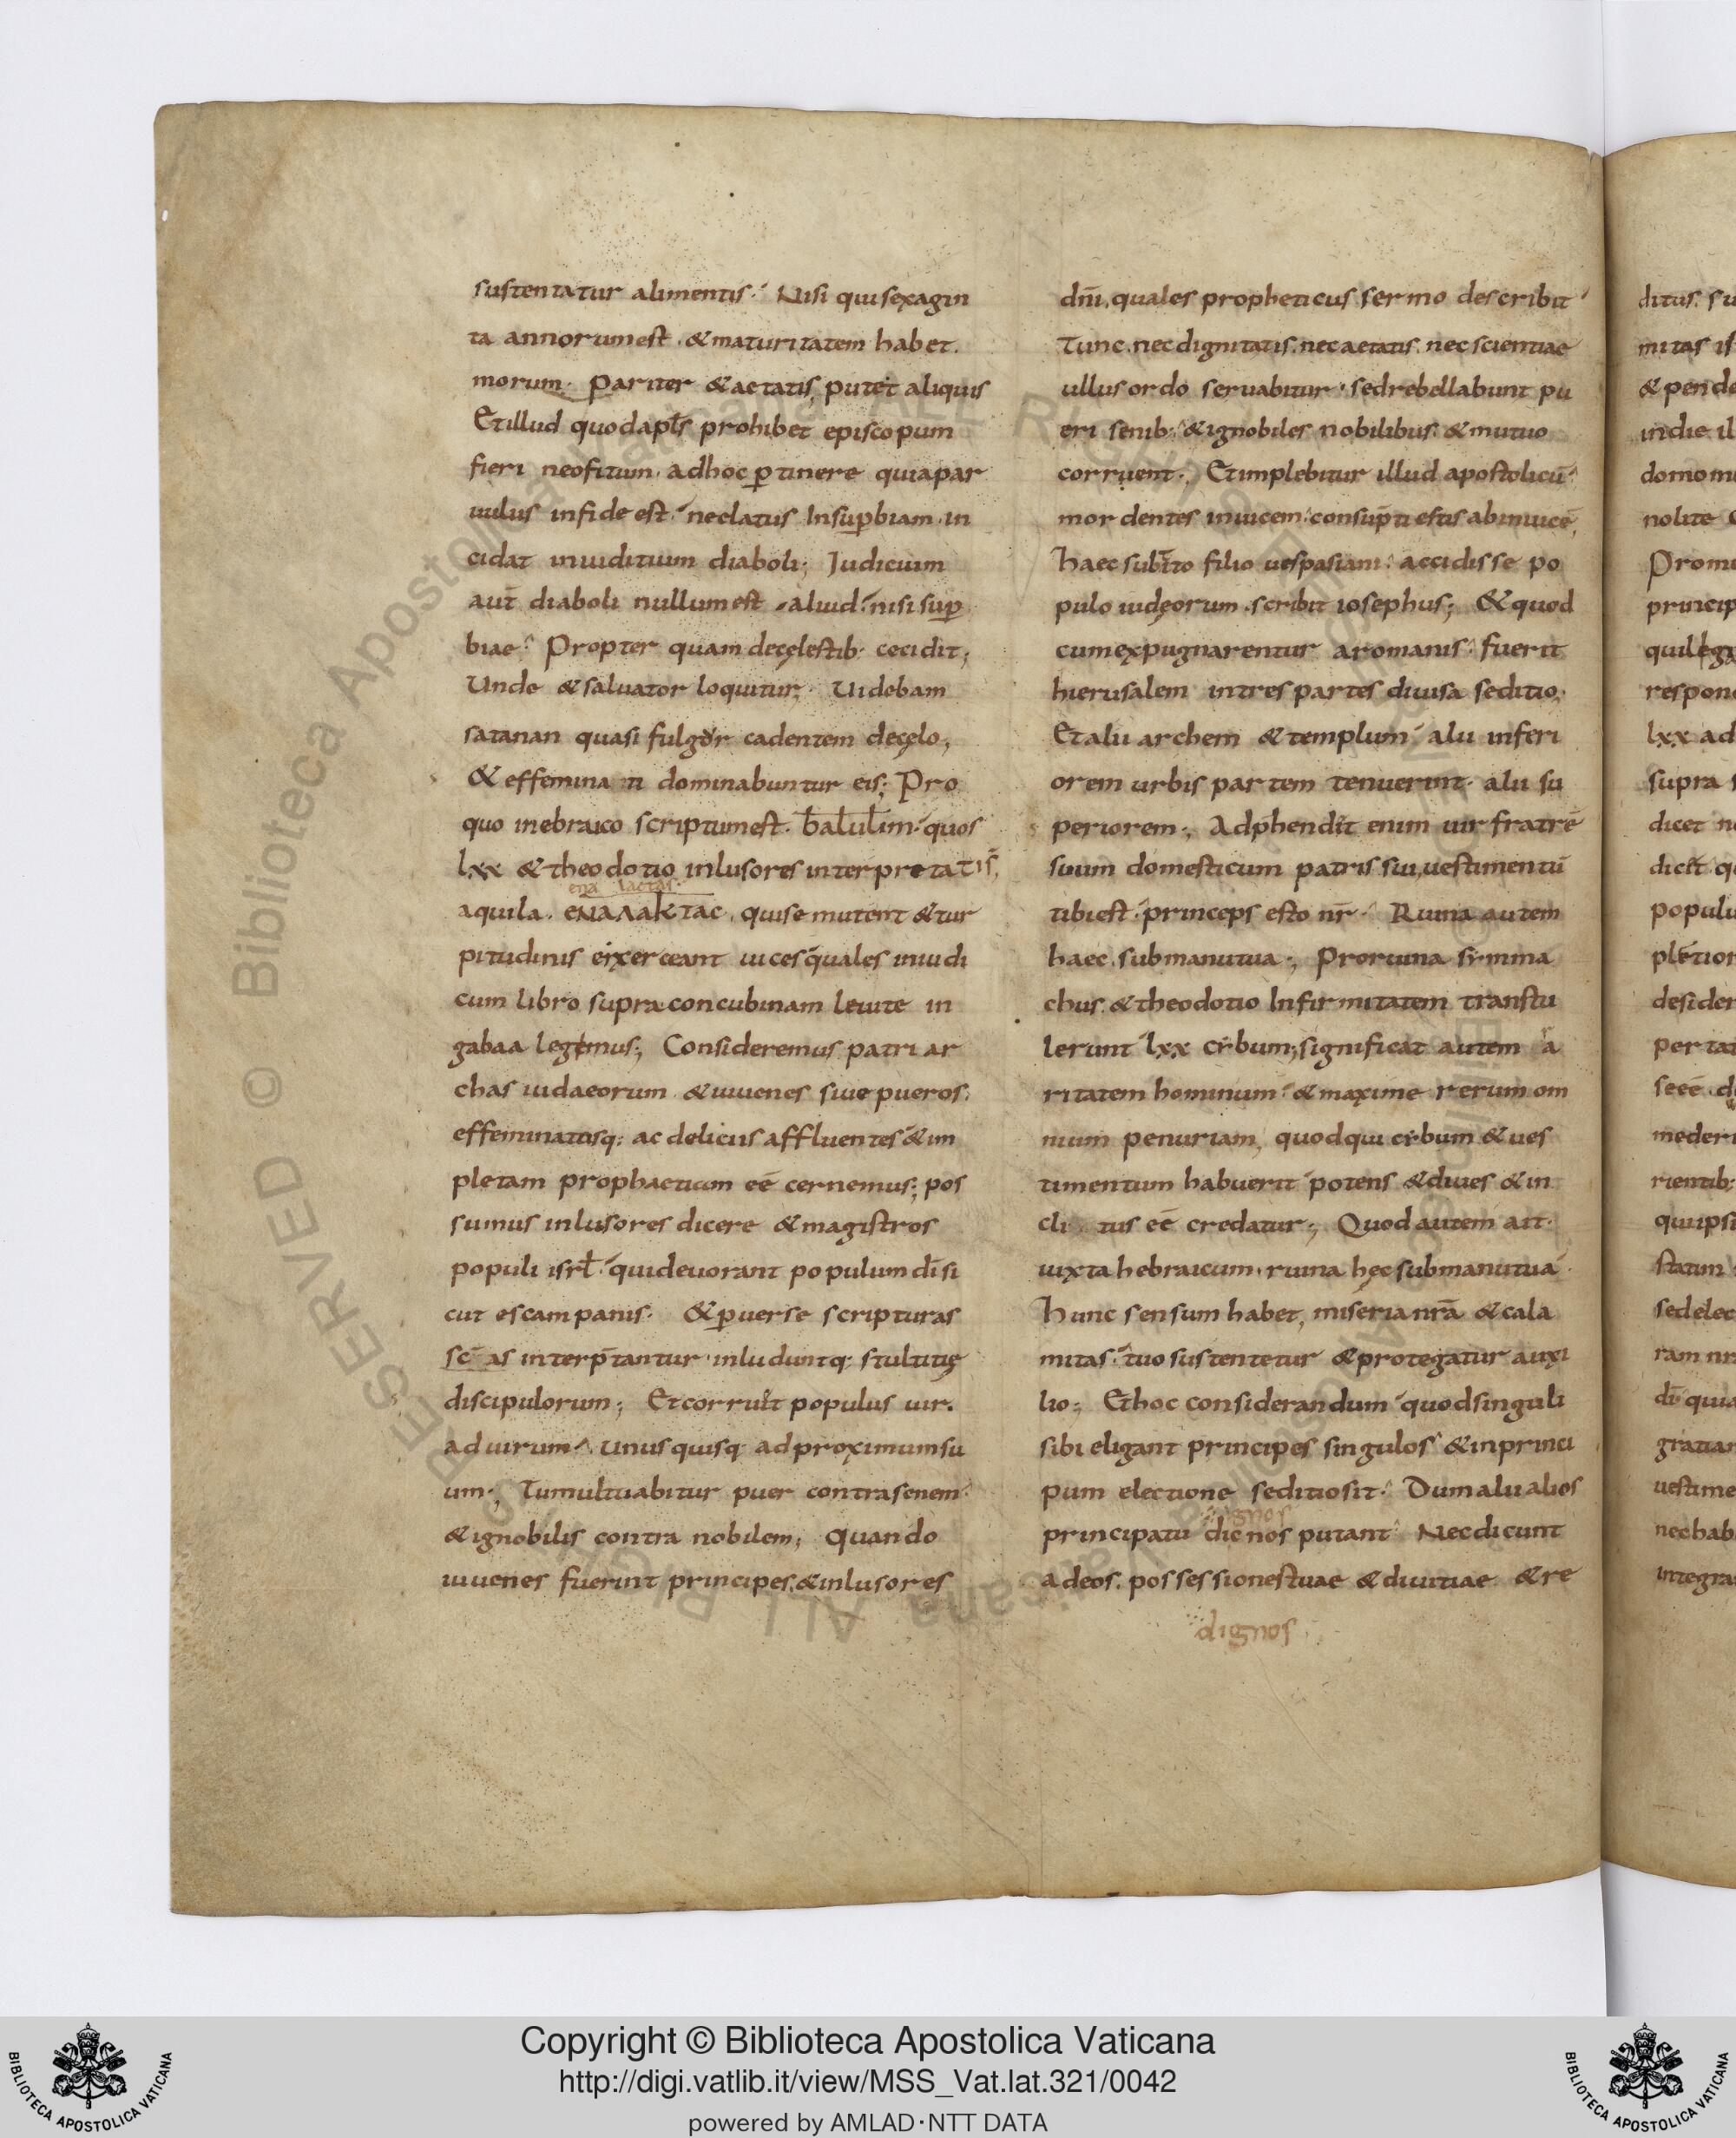 sustentatur alimentis. Nisi qui sexagin
ta annorum est. & maturitatem habet.
morum. Pariter & aetatis, putet aliquis
Et illud quod apłs prohibet episcopum
fieri neofitum. adhoc ꝑtinere quia par
uulus in fide est. neclatus Insuꝑbiam. in
cidat iniuditium diaboli; Iudicium
aut̄ diaboli nullum est aliud. nisi suꝑ
biae. Propter quam decęlestib: cecidit;
Unde & saluator loquitur; Uidebam
satanan quasi fulgor cadentem decęlo;
& effeminati dominabuntur eis; Pro
quo inebraico scriptum est. bałulim. quos
lxx & theodotio inlusores interpretatis,
ena lactas
aquila. ενaλaκτac. qui se mutent & tur
pitudinis exerceant uices quales iniudi
cum libro supra concubinam leuite in
gabaa legimus; Consideremus patriar
chas iudaeorum & iuuenes siue pueros.
effeminatosq: ac deliciis affluentes & im
pletam prophaeticam eē cernemus; pos
sumus inlusores dicere & magistros
populi isrł. qui deuorant populum dī si
cut escam panis. & ꝑuerse scripturas
sc̄as interp̄tantur. inluduntq: stultitię
discipulorum; Et corruit populus uir.
ad uirum. Unusquisq: ad proximum su
um; Tumultuabitur puer contra senem.
& ignobilis contra nobilem; Quando
iuuenes fuerint principes. & inlusores
dn̄i, quales propheticus sermo describit
Tunc. nec dignitatis. nec aetatis. nec scientiae
ullus ordo seruabitur. sed rebellabunt pu
eri senib: & ignobiles nobilibus & mutuo
corruent. Et implebitur illud apostolicū
mordentes inuicem. consūpti estis abinuicē,
Haec sub tito filio uespasiani. accidisse po
pulo iudęorum. scribit iosephus; & quod
cum expugnarentur aromanis. fuerit
hierusalem intres partes diuisa seditio.
Et alii archem & templum alii inferi
orem urbis partem tenuerint. alii su
periorem; Adp̄hendit enim uir fratrē
suum domesticum patris sui, uestimentū
tibi est. princeps esto nr̄. Ruina autem
haec. submanutua; Pro ruina symma
chus. & theodotio Infirmitatem transtu
lerunt lxx cybum; significat autem ra
ritatem hominum. & maxime rerum om
nium penuriam, quod qui cybum & ues
timentum habuerit potens & diues & in
clitus eē credatur; Quod autem ait.
iuxta hebraicum. ruina hęc submanutuā.
Hunc sensum habet, miseria nr̄a & cala
mitas. tuo sustentetur & protegatur auxi
lio; Et hoc considerandum quod singuli
sibi eligant principes singulos & inprinci
pum electione seditio sit. Dum alii alios
dignos
principatu dicnos putant. Nec dicunt
ad eos. possessiones tuae & diuitiae & re
dignos
ditus. su
mitas is
& pende
indie il
domo m
nolite
Prom
princip
qui leg
respon
lxx ad
supra s
dicet n
dicit q
popul
pletior
desider
per ta
se eē d
meder
rientib:
qui ipsi
statim
sed elec
ram nr
dī quia
gratiar
uestime
nec hab
integra
Copyright © Biblioteca Apostolica Vaticana
http://digi.vatlib.it/view/MSS_Vat.lat.321/0042
powered by AMLAD·NTT DATA
BIBLIOTECA APOSTOLICA VATICANA
BIBLIOTECA APOSTOLICA VATICANA